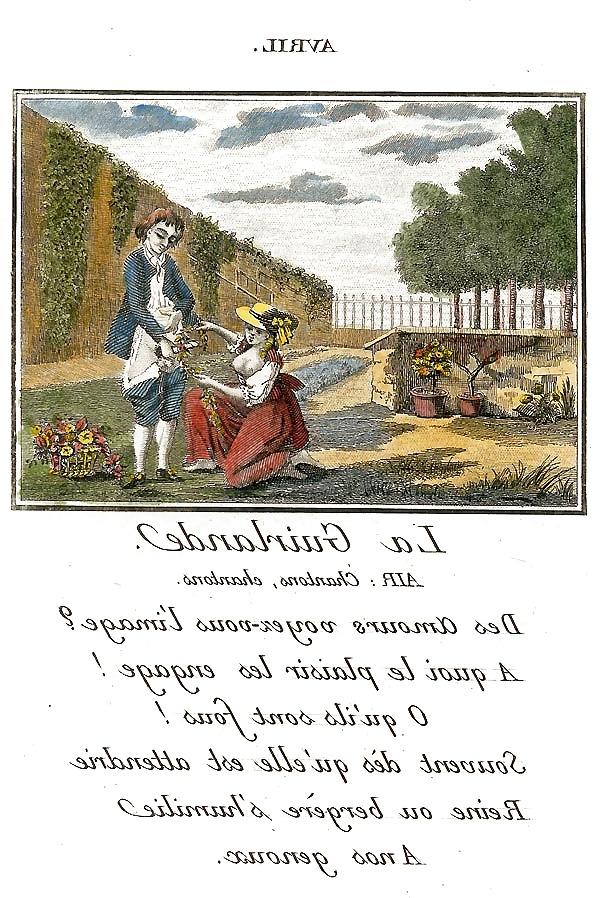 AVRIL.
La Guirlande.
AIR : Chantons, chantons.
Des Amours voyez-vous l'image ?
A quoi le plaisir les engage !
O qu'ils sont fous !
Souvent dès qu'elle est attendrie
Reine ou bergère s'humilie
A nos genoux.